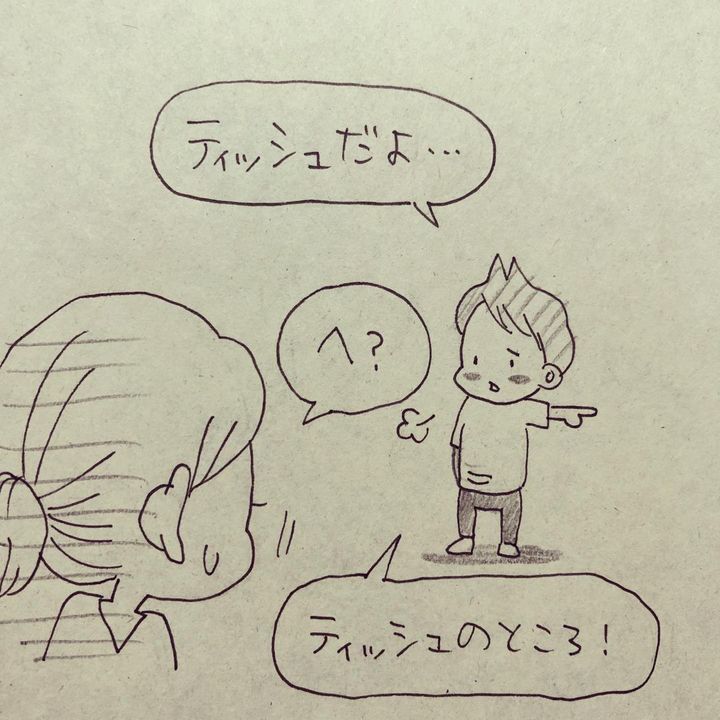 ティッシュだよ…
へ?
ティッシュのところ!